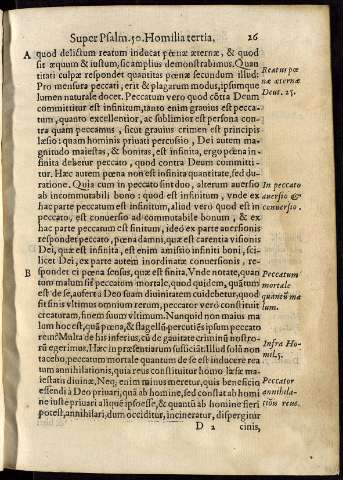 Super Psalm. 50. Homilia tertia, 26
A quod delictum reatum inducat pœnæ æternæ, & quod
sit æquum & iustum, sic amplius demonstrabimus. Quan
titati culpæ respondet quantitas pœnæ secundum illud:
Pro mensura peccati, erit & plagarum modus, ipsumque
lumen naturale docet. Peccatum vero quod cõtra Deum
committitur est infinitum, tanto enim grauius est pecca-
tum, quanto excellentior, ac sublimior est persona con
tra quam peccamus, sicut grauius crimen est principis
læsio: quam hominis priuati percussio, Dei autem ma-
gnitudo maiestas, & bonitas, est infinita, ergo pœna in
finita debetur peccato, quod contra Deum committi-
tur. Hæc autem pœna non est infinita quantitate, sed du-
ratione. Quia cum in peccato sint duo, alterum auersio
ab incommutabili bono: quod est infinitum, vnde ex
hac parte peccatum est infinitum, aliud vero quod est in
peccato, est conuersio ad commutabile bonum, & ex
hac parte peccatum est finitum, ideo ex parte auersionis
respondet peccato, pœna damni, quæ est carentia visionis
Dei, quæ est infinita, est enim amissio infiniti boni, sci-
licet Dei, ex parte autem inordinatæ conuersionis, re-
B spondet ei pœna sensus, quæ est finita. Vnde notate, quan
tum malum sit peccatum mortale, quod quidem, quãtum
est de se, aufert à Deo suam diuinitatem cui debetur, quod
sit finis vltimus omnium rerum, peccator verò constituit
creaturam, finem suum vltimum. Nunquid non maius ma
lum hoc est, quã pœna, & flagellũ percutiẽs ipsum peccato
rem? Multa de his inferius, cũ de grauitate criminũ nostro-
rũ egerimus. Hæc in præsentiarum sufficiãt. Illud solũ non
tacebo, peccatum mortale quantum de se est inducere rea
tum annihilationis, quia reus constituitur homo læsæ ma-
iestatis diuinæ, Neq; enim minus meretur, quis beneficio
essendi à Deo priuari, quã ab homine, sed constat ab homi
ne iuste priuari aliquẽ ipso esse, & quantũ ab homine fieri
potest, annihilari, dum occiditur, incineratur, dispergitur
D 2 cinis,
Reatus pœ
næ æternæ
Deut. 25.
In peccato
auersio &
conuersio.
Peccatum
mortale
quantũ ma
lum.
Infra Ho-
mil. 5.
Peccator
annihila-
tiõis reus.